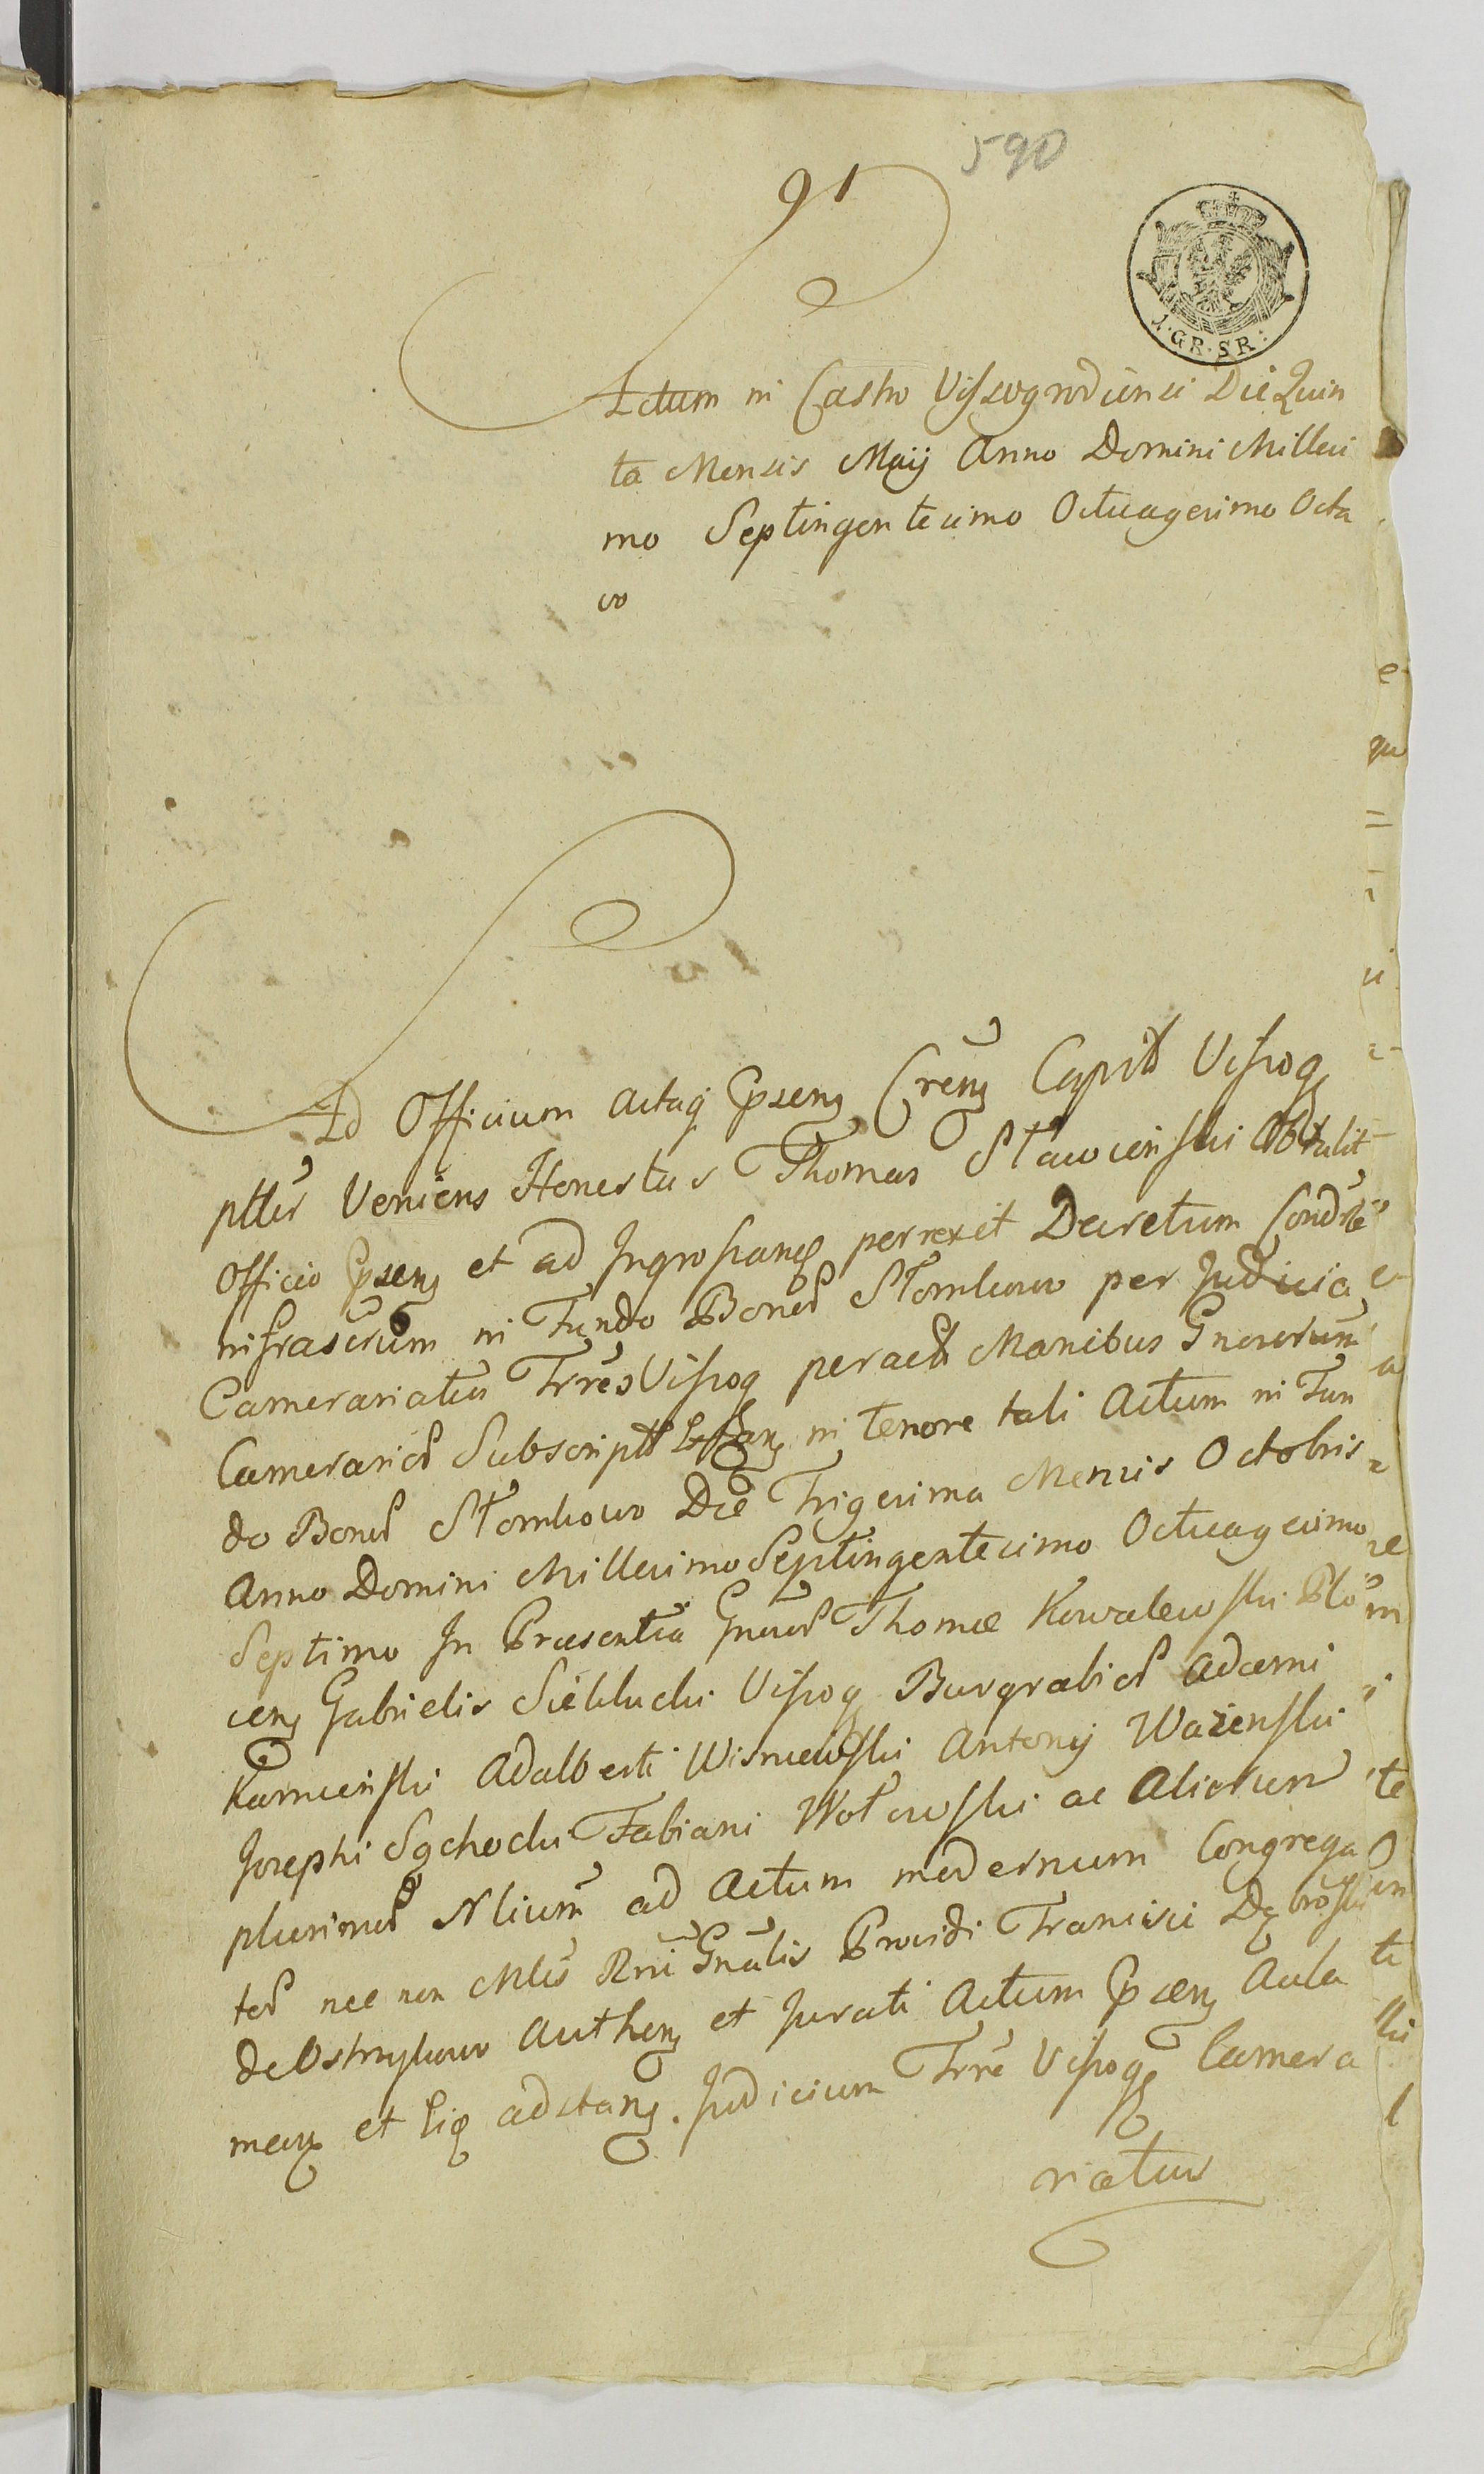 590
91
1.GR.SR:
Actum in Castro Vissogrodiensi Die Quin
ta Mensis Maij Anno Domini Millesi
mo Septingentesimo Octuagesimo Octa
vo
Ad Officium Actaq Cpsens Crens Capitl Vissog
plter Veniens Honestus Thomas Sławienski Obtulit
Officio Cpsens et ad Ingrossang perrexit Decretum
infrascrum in Fundo Bonor Słomkowo per Judicia
Camerariatus Trres Vissog peract Manibus Gnosorum
Camerarior Subscript in tenore tali Actum in Fun
do Bonor Słomkowo Die Trigesima Mensis Octobris
Anno Domini Millesimo Septingentesimo Octuagesimo
Septimo In Præsentia Gnosor Thomæ Kowalewski Plo
cens Gabrielis Siekluchi Vissog Burgrabior Adami
Kamienski Adalberti Wisniewski Antonij Wazenski
Josephi Sęchocki Fabiani Wołowski ac Aliorum
plurimor Nlium ad Actum modernum Congrega
tor nec non Mlis Rni Gnalis Providi Francisci Dąbroski
de Ostrzykowo Authens et Jurati Actum Cpsens Aula
meus et liq adstans. Judicium Trre Vissog Camera
riatus